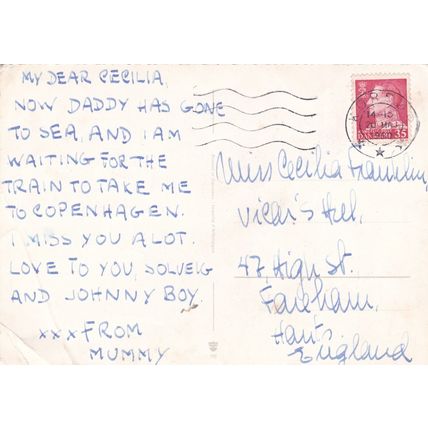 MY DEAR CECILIA
NOW DADDY HAS GONE
TO SEA, AND I AM
WAITING FOR THE
TRAIN TO TAKE ME
TO COPENHAGEN.
I MISS YOU A LOT.
LOVE TO YOU, SOLVEIG
AND JOHNNY BOY.
xxx FROM
MUMMY
14-15
35
Miss Cecilia Franklin,
Vicar's Hel,
47, High St.
Fareham,
Hants.
England